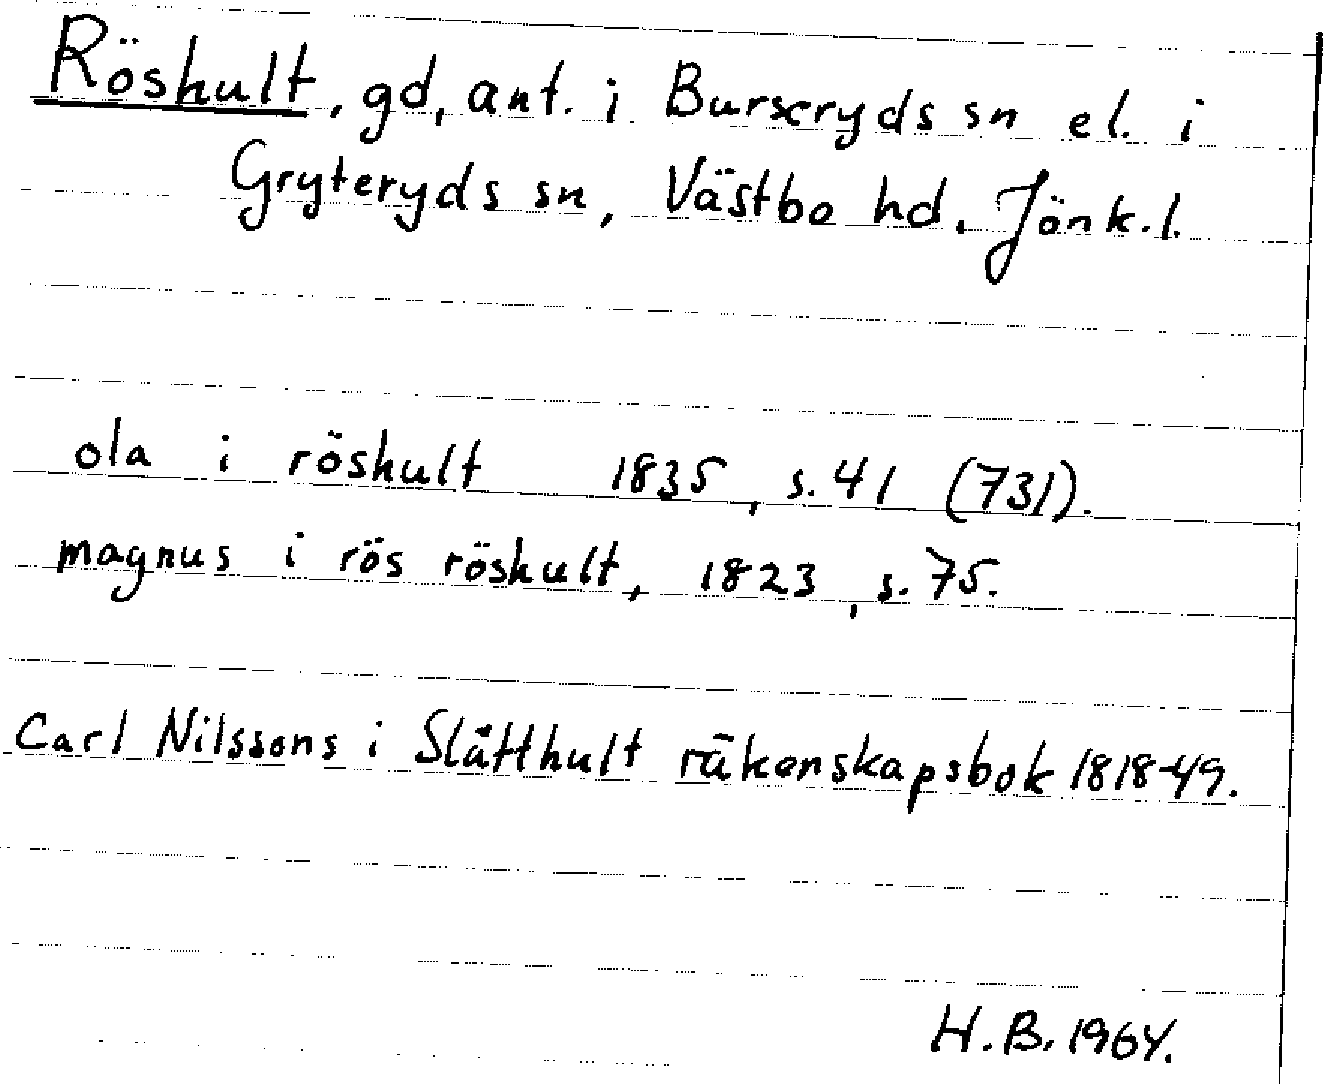 Röshult, gd, ant. i Burseryds sn el. i
Gryteryds sn, Västbo hd. Jönk.l.
ola i röshult 1835, s.41 (731).
magnus i rös röshult, 1823, s.75.
Carl Nilssons i Slätthult räkenskapsbok 1818-49.
H.B. 1964.